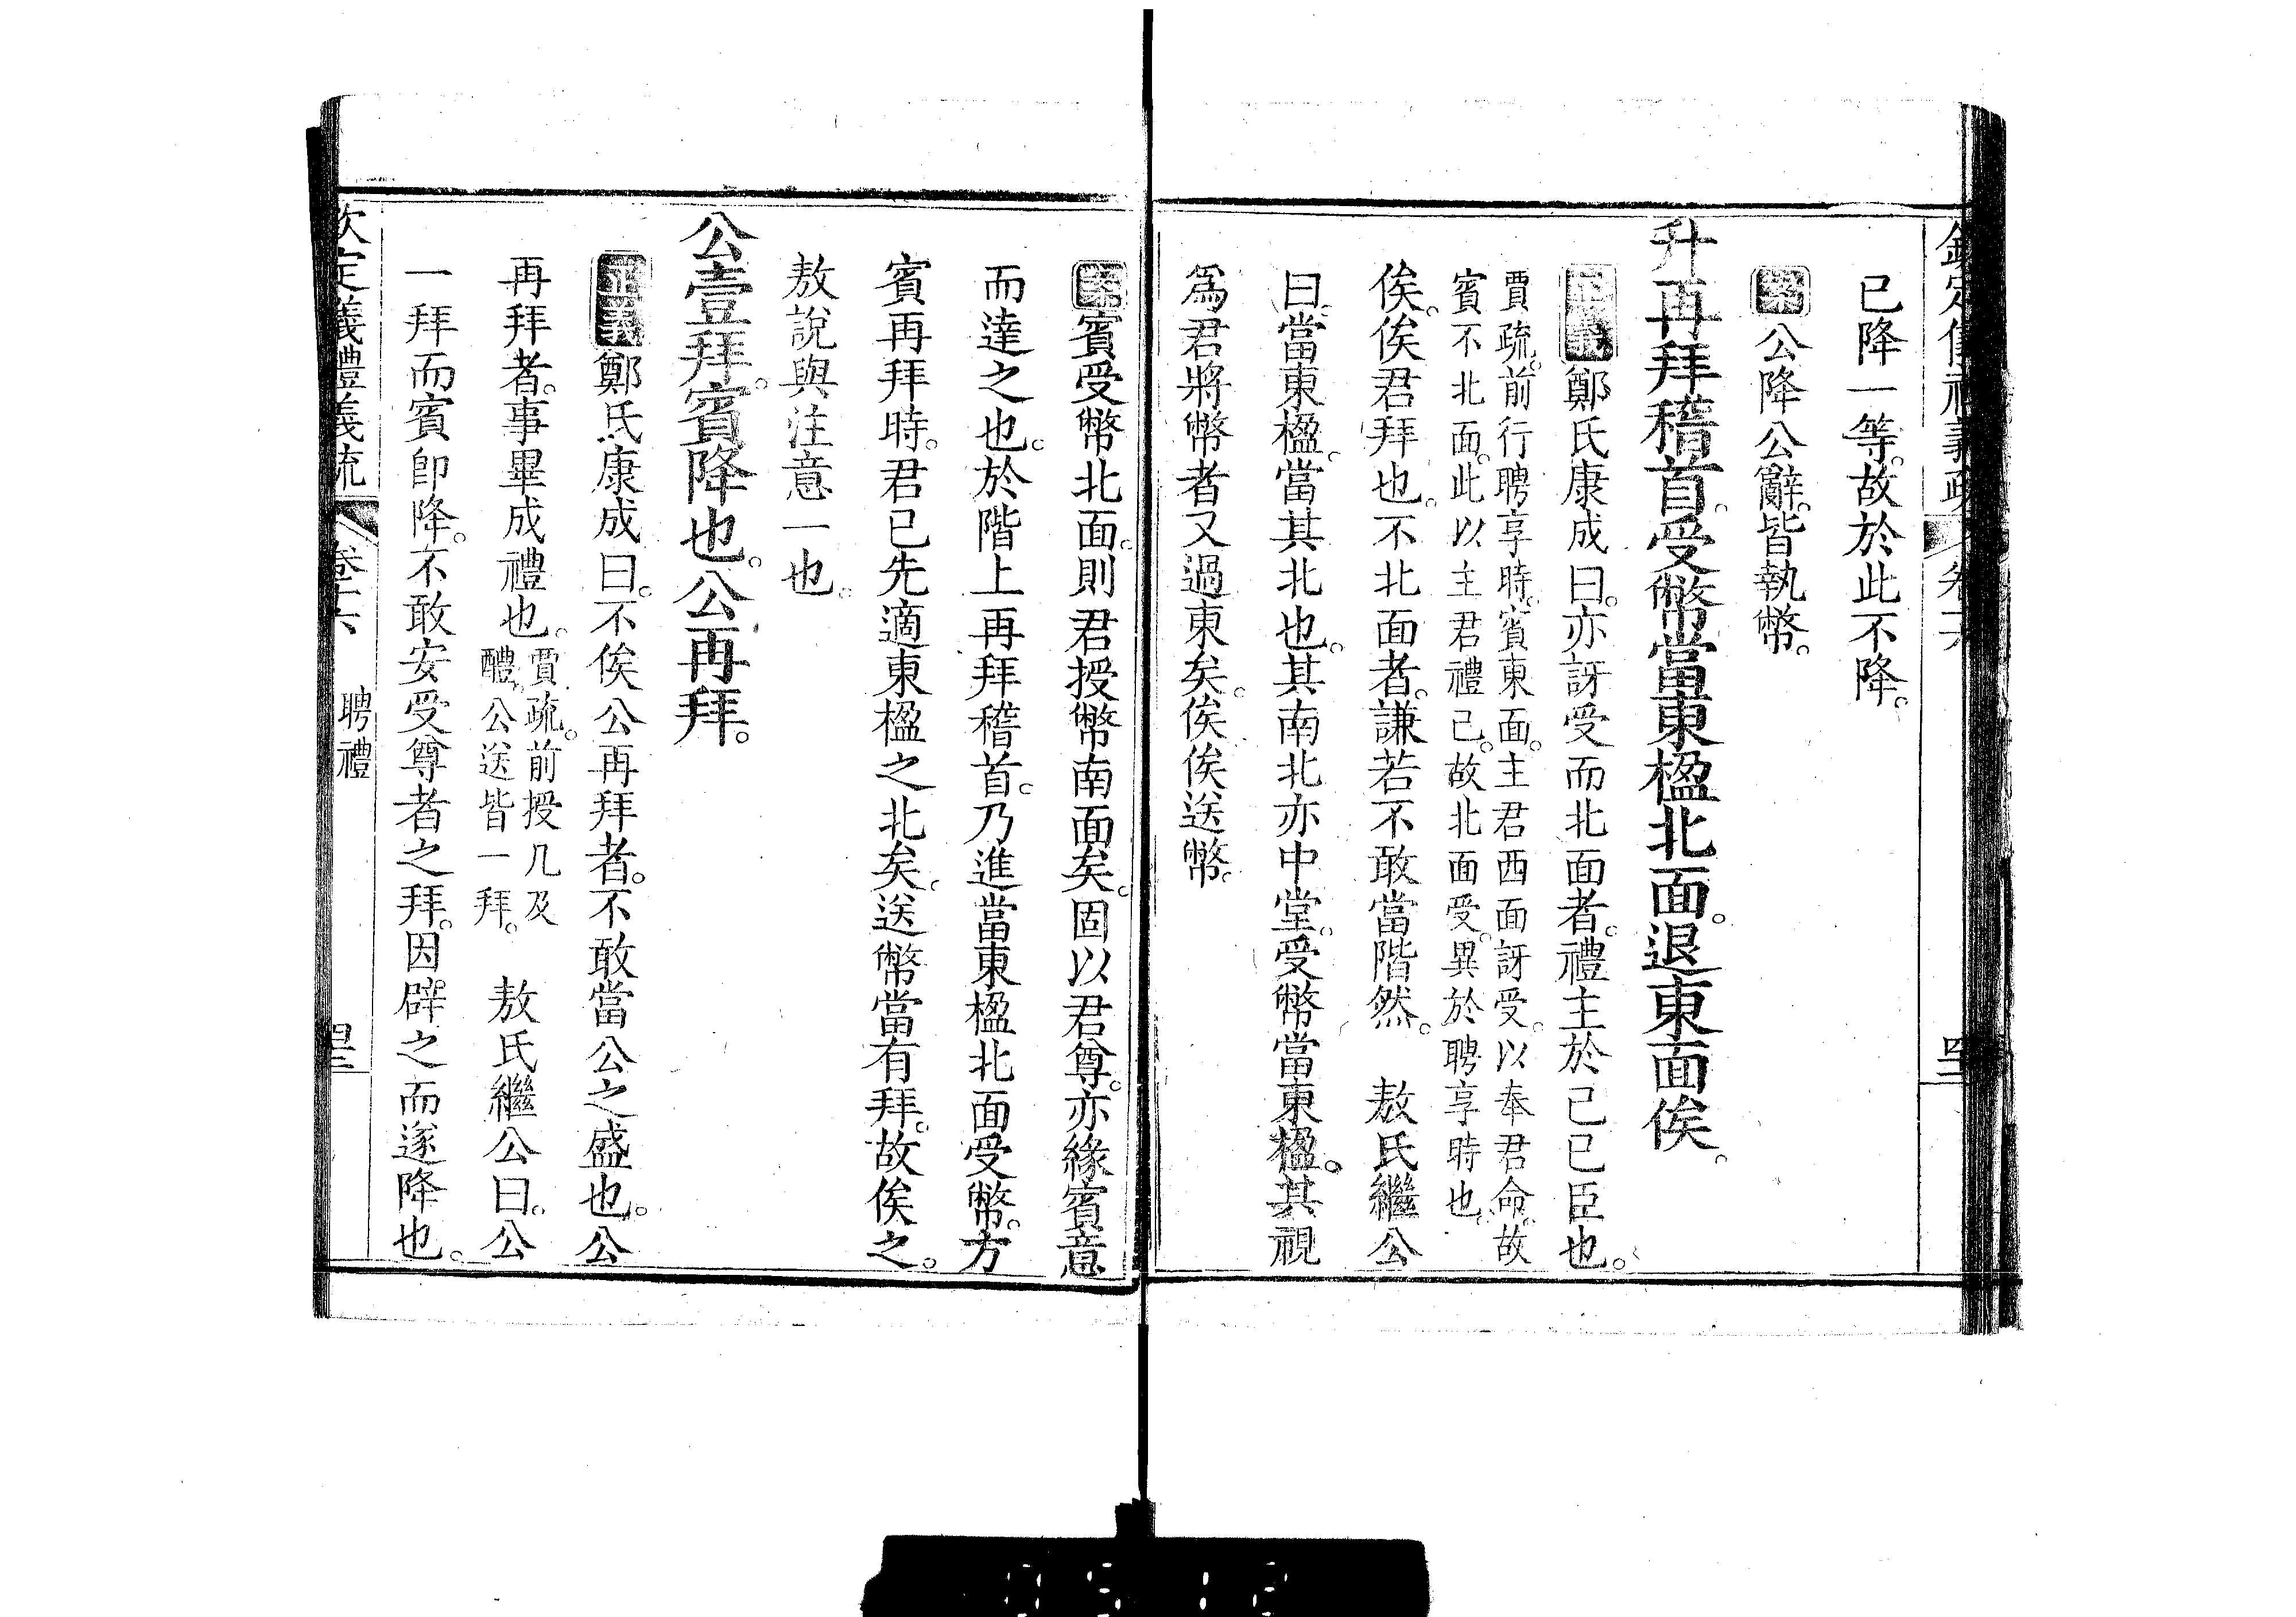 已降一等。故於此不降。
案公降公辭。皆執幣。
升再拜稽首。受幣當東楹北面。退東面俟。
正義鄭氏康成曰。亦訝受而北面者。禮主於己。己臣也。
賈疏。前行聘享時。賓東面。主君西面訝受。以奉君命。故
賓不北面。此以主君禮己。故北面受。異於聘享時也。
俟。俟君拜也。不北面者。謙若不敢當階然。 敖氏繼公
曰。當東楹。當其北也。其南北亦中堂。受幣當東楹。其視
為君將幣者又過東矣。俟俟送幣。
案賓受幣北面。則君授幣南面矣。固以君尊。亦緣賓意
而達之也。於階上再拜稽首。乃進當東楹北面受幣。方
賓再拜時。君已先適東楹之北矣。送幣當有拜。故俟之。
敖說與注意一也。
公壹拜。賓降也。公再拜。
正義鄭氏康成曰。不俟公再拜者。不敢當公之盛也。公
再拜者。事畢成禮也。
賈疏。前授几及
醴。公送皆一拜。
敖氏繼公曰。公
一拜而賓即降。不敢安受尊者之拜。因辟之而遂降也。
欽定儀禮義疏 卷十六 聘禮